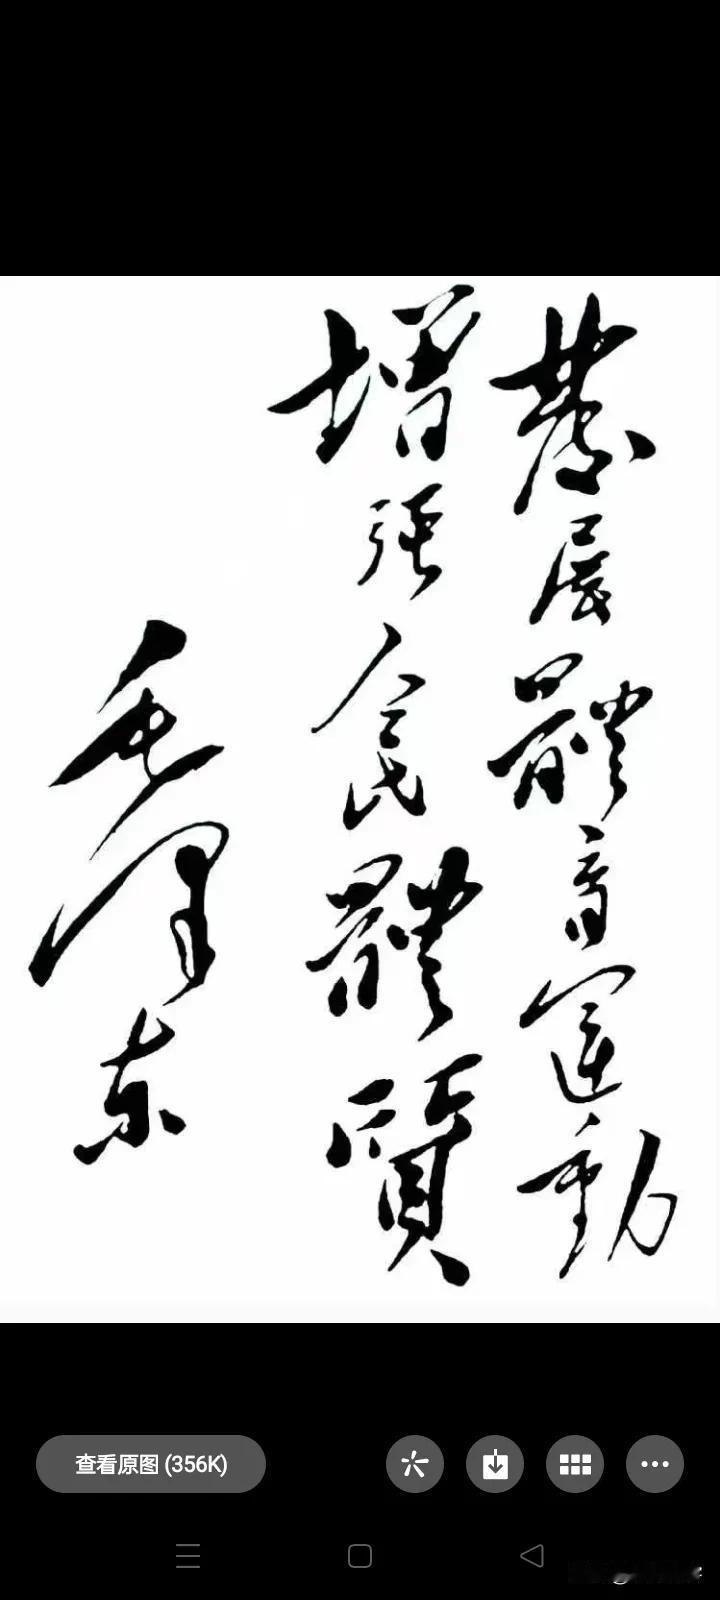 發展體育運動
增强人民體質
毛澤東
查看原图 (356K)